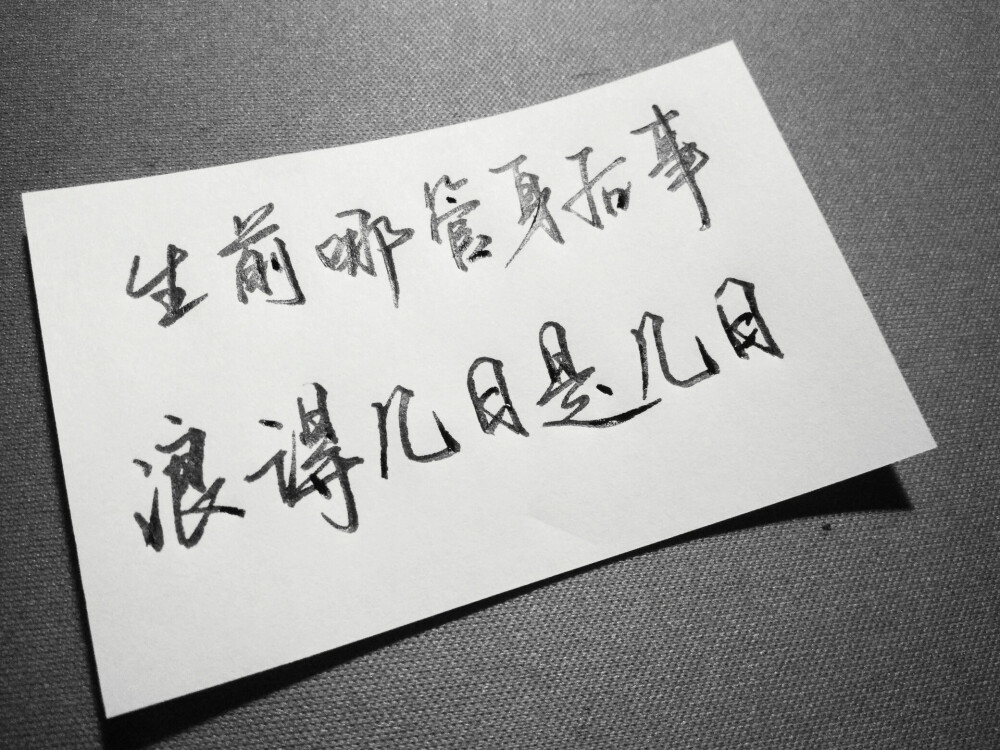 生前哪管身后事
浪得几日是几日